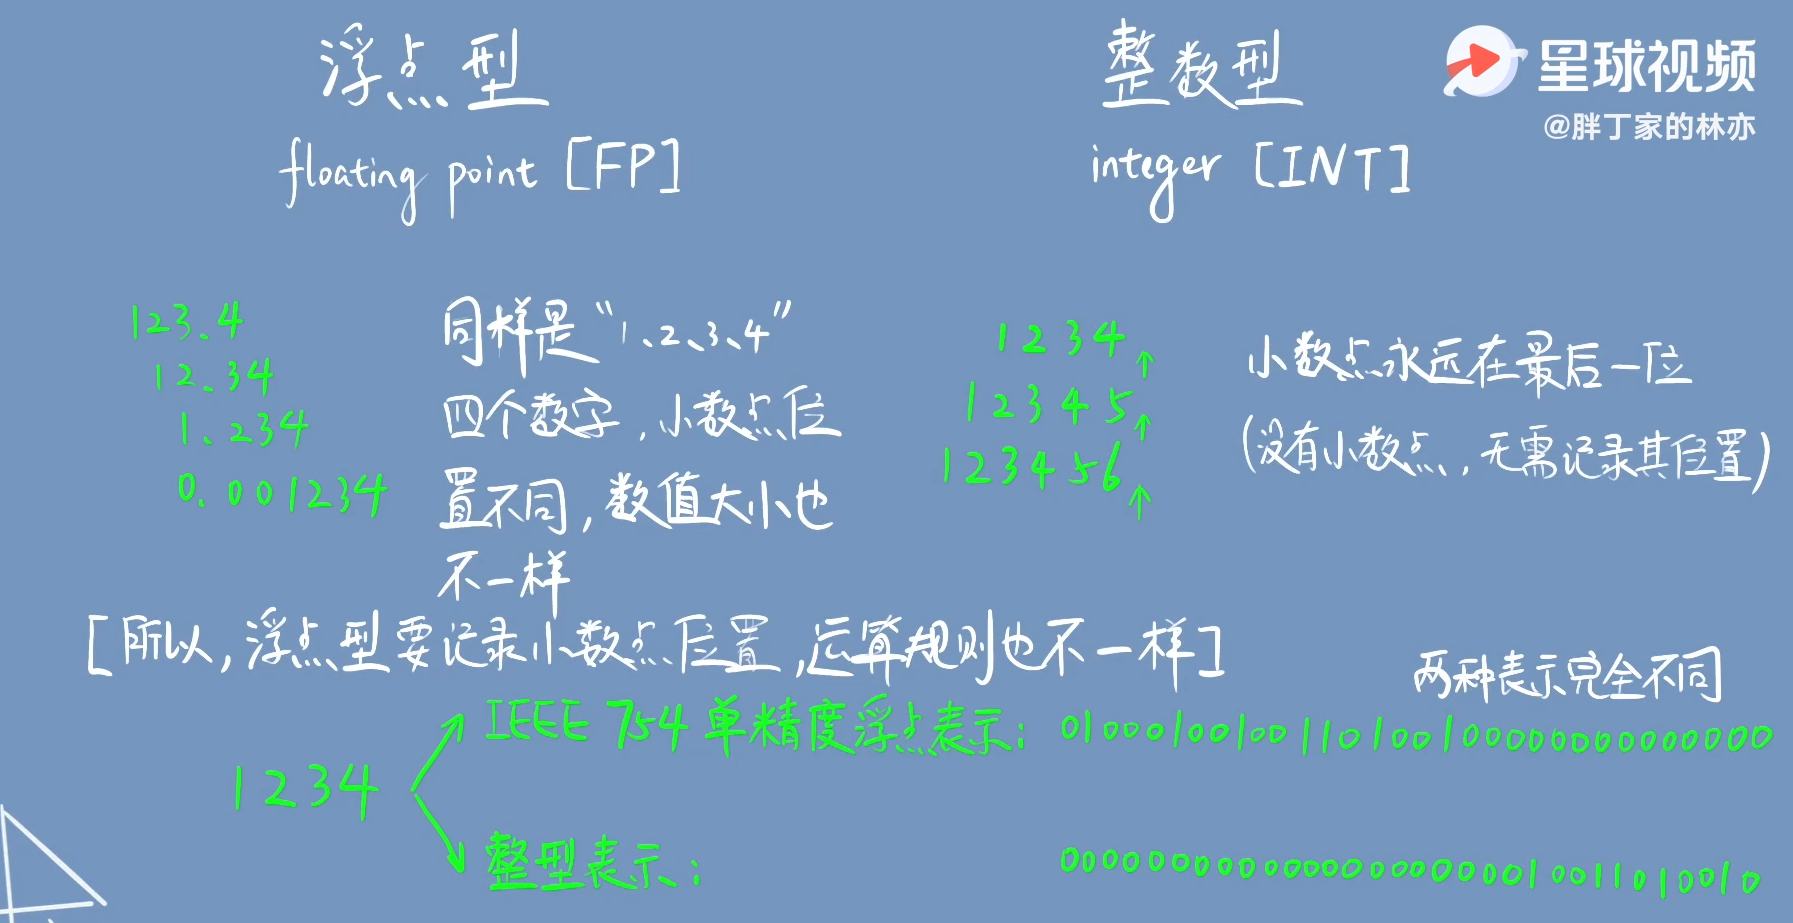 浮点型
floating point [FP]
整数型
integer [INT]
星球视频
@胖丁家的林亦
123.4
12.34
1.234
0.001234
同样是“1、2、3、4”
四个数字，小数点位
置不同，数值大小也
不一样
1234↑
12345↑
123456↑
小数点永远在最后一位
(没有小数点，无需记录其位置)
[所以，浮点型要记录小数点位置，运算规则也不一样]
两种表示完全不同
1234
IEEE 754 单精度浮点表示： 01000100100110100100000000000000
整型表示： 00000000000000000000010011010010